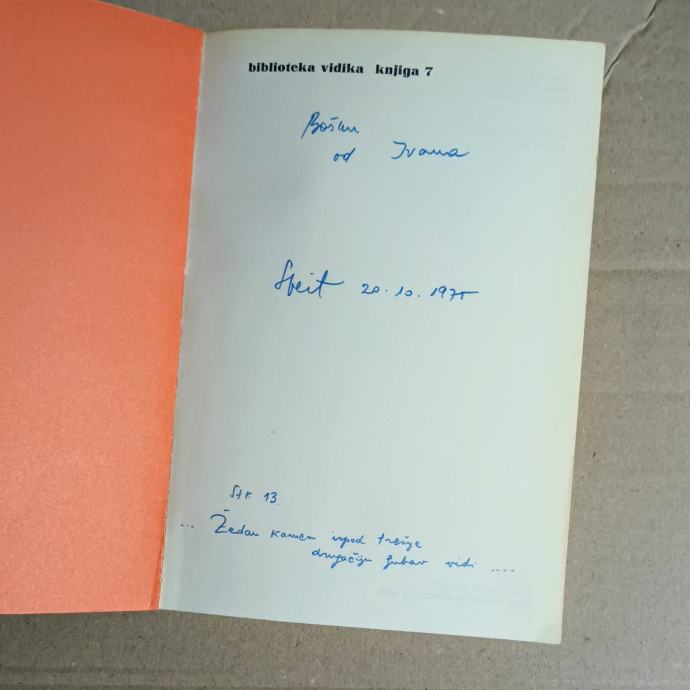 biblioteka vidika knjiga 7
od Ivana
Split 20.10.1975
Str. 13.
... Žedan kamen ispod trešnje
drugačiju ljubav vidi ....